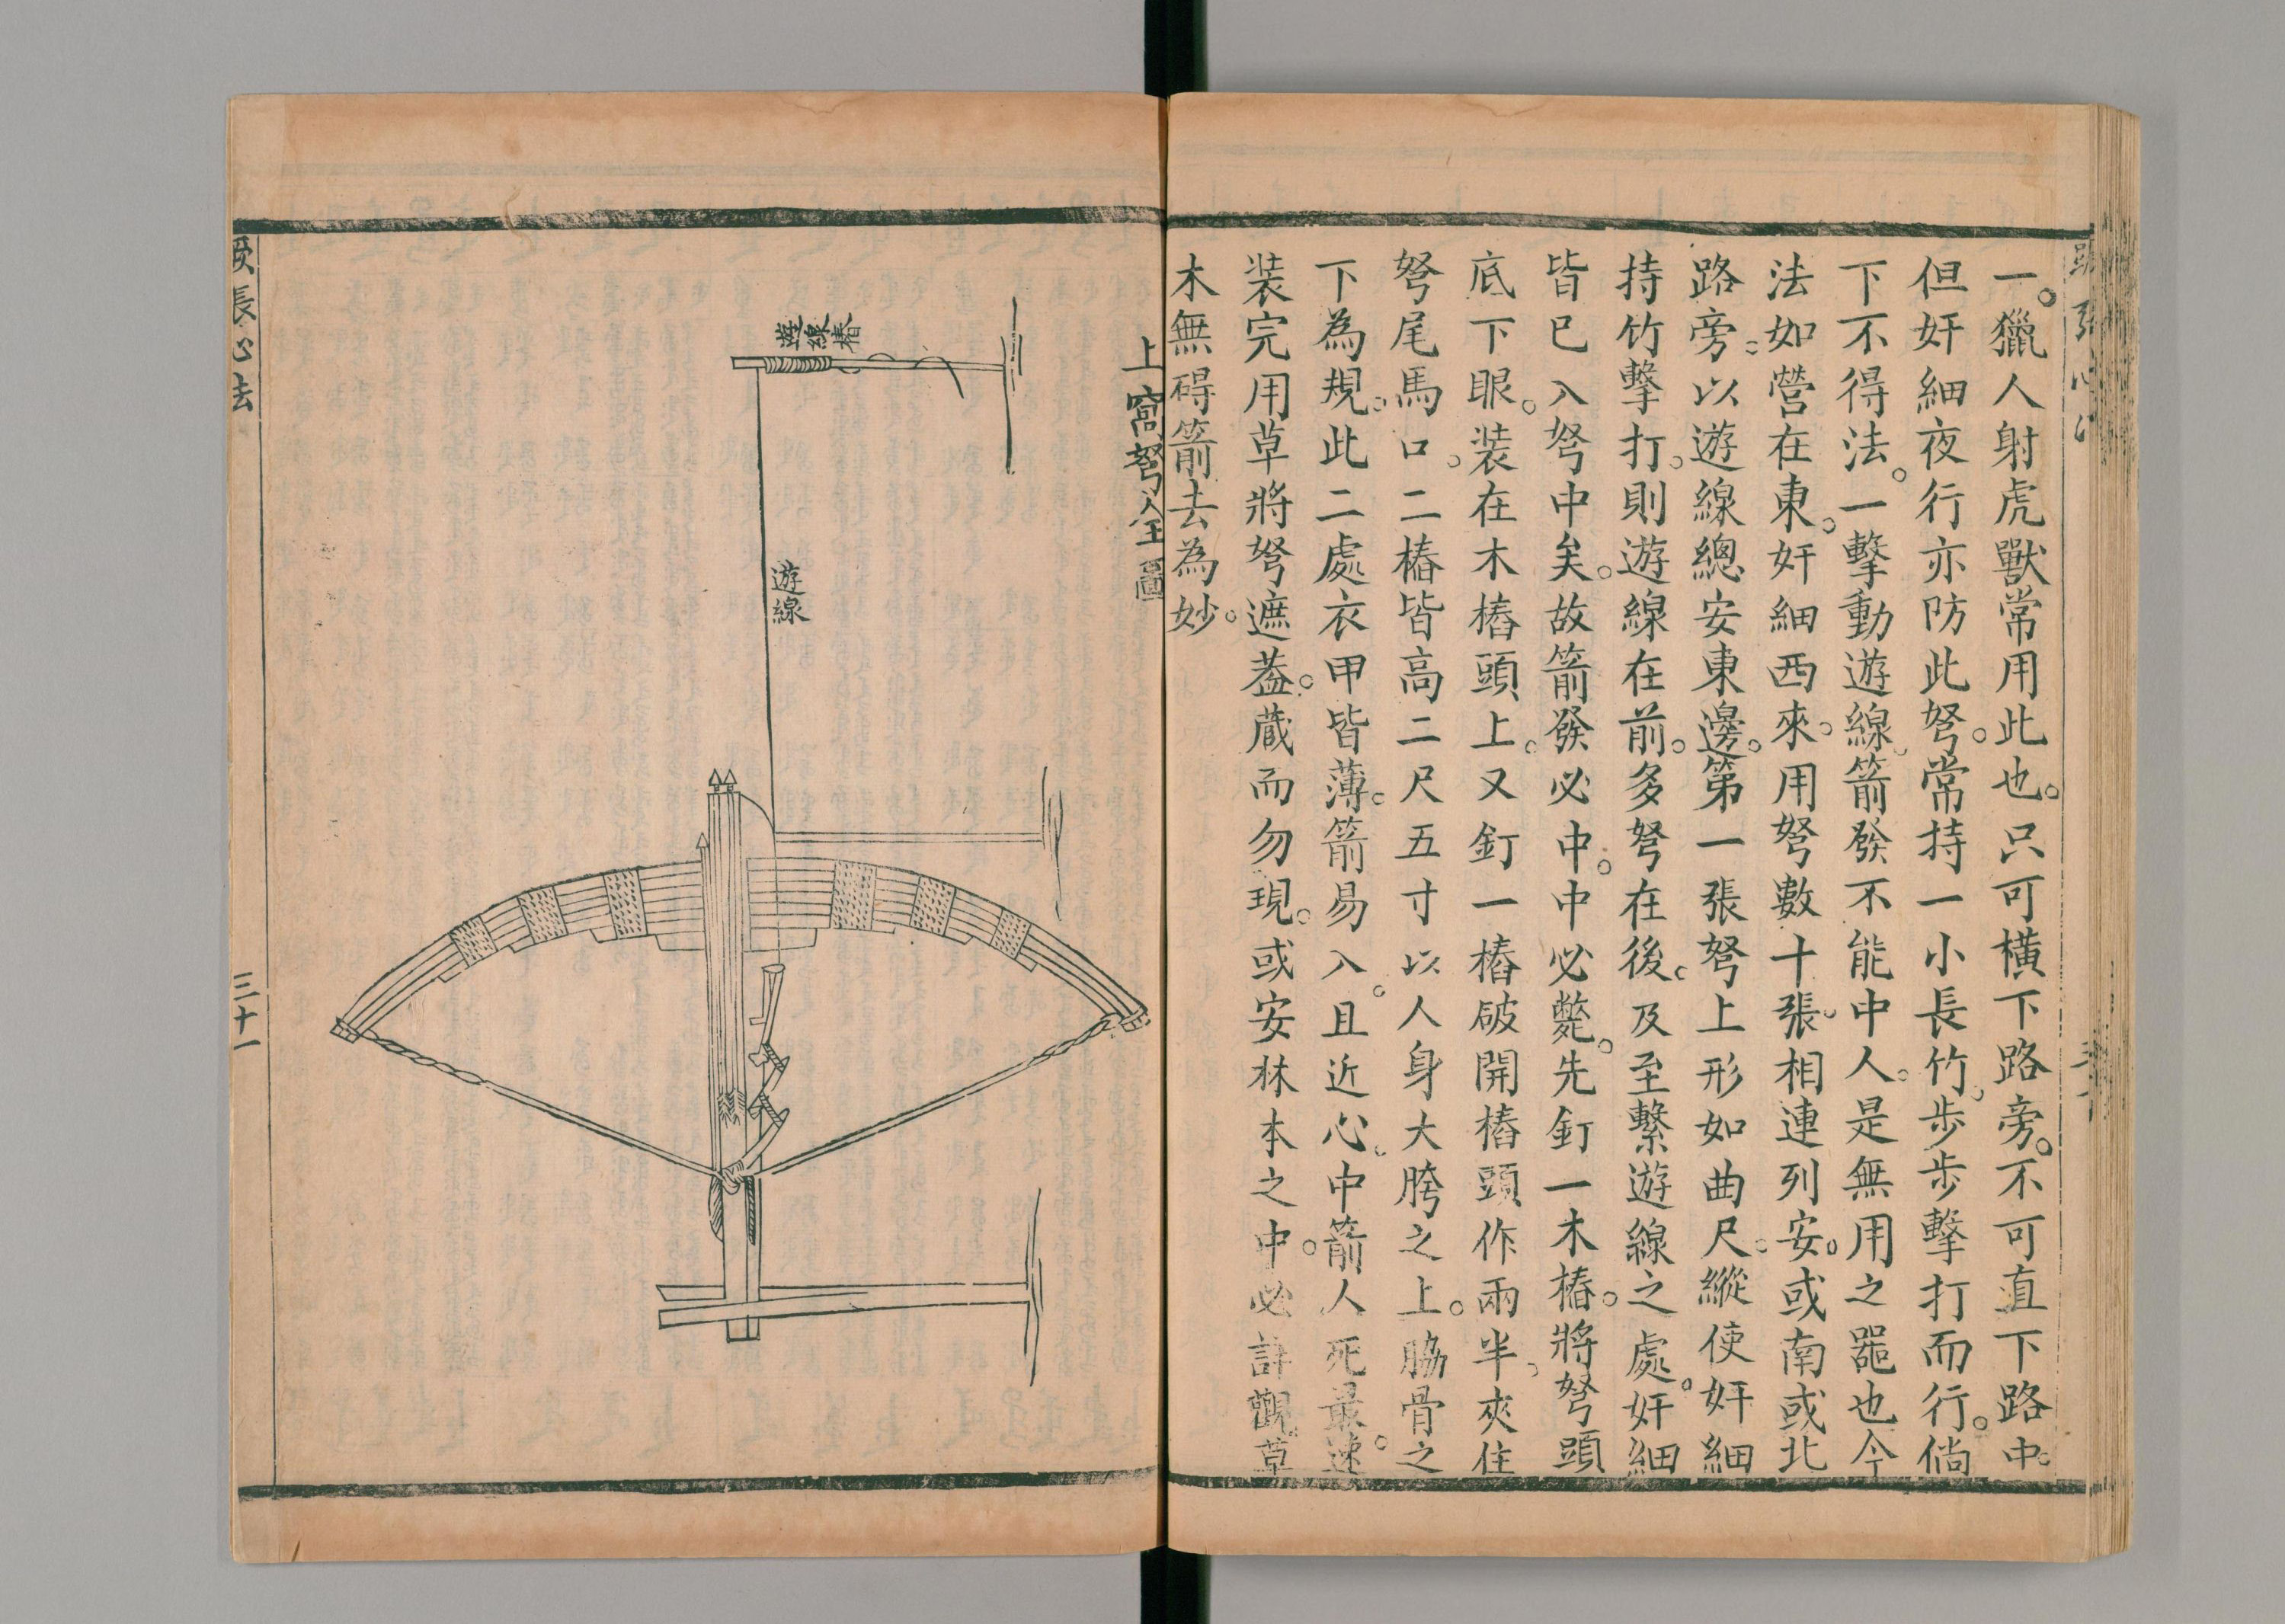 一。獵人射虎獸常用此也。只可橫下路旁。不可直下路中。
但奸細夜行亦防此弩。常持一小長竹。步步擊打而行。倘
下不得法。一擊動遊線。箭發不能中人。是無用之噐也今
法如營在東。奸細西來。用弩數十張。相連列安。或南或北
路旁。以遊線總安東邊。第一張弩上形如曲尺。縱使奸細
持竹擊打。則遊線在前。多弩在後。及至繫遊線之處。奸細
皆已入弩中矣。故箭發必中。中必斃。先釘一木樁。將弩頭
底下眼。装在木樁頭上。又釘一樁破開樁頭作兩半。夾住
弩尾馬口。二樁皆高二尺五寸以人身大胯之上。脇骨之
下為規。此二處衣甲皆薄。箭易入。且近心。中箭人死最速。
装完用草將弩遮葢。蔵而勿現。或安林木之中。必詳觀草
木無碍箭去為妙。
上窩弩全圖
遊線樁
遊線
蹶張心法
三十一